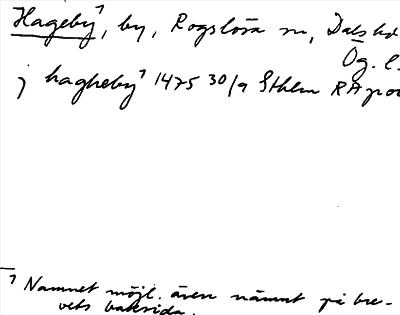 Hageby¹, by, Rogslösa sn, Dals hd
Ög. l.
j hagheby¹ 1475 30/9 Sthlm RA por
¹ Namnet möjl. även nämnt på bre-
vets baksida.